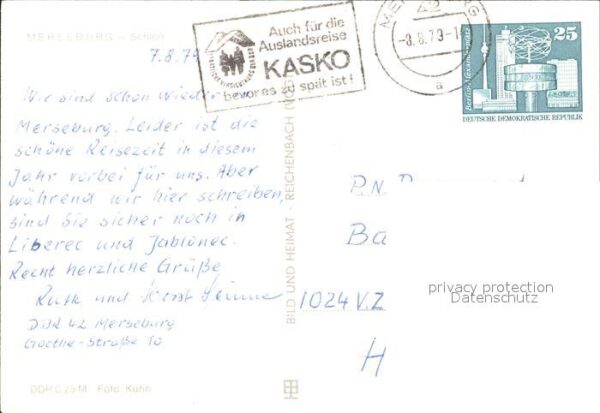 MERSEBURG — Schloß
7.8.79
Wir sind schon wieder
Merseburg. Leider ist die
schöne Reisezeit in diesem
Jahr vorbei für uns. Aber
während wir hier schreiben,
sind Sie sicher noch in
Liberec und Jablonec.
Recht herzliche Grüße
Ruth und Horst
DDR 42 Merseburg
Goethe-Straße 10
DDR G 25 M Foto: Kuhn
BILD UND HEIMAT · REICHENBACH
Auch für die
Auslandsreise
KASKO
bevor es zu spät ist!
42
-8.8.79-
a
25
Berlin-Alexanderplatz
DEUTSCHE DEMOKRATISCHE REPUBLIK
P.N.
Ba
1024 V.Z
H
privacy protection
Datenschutz